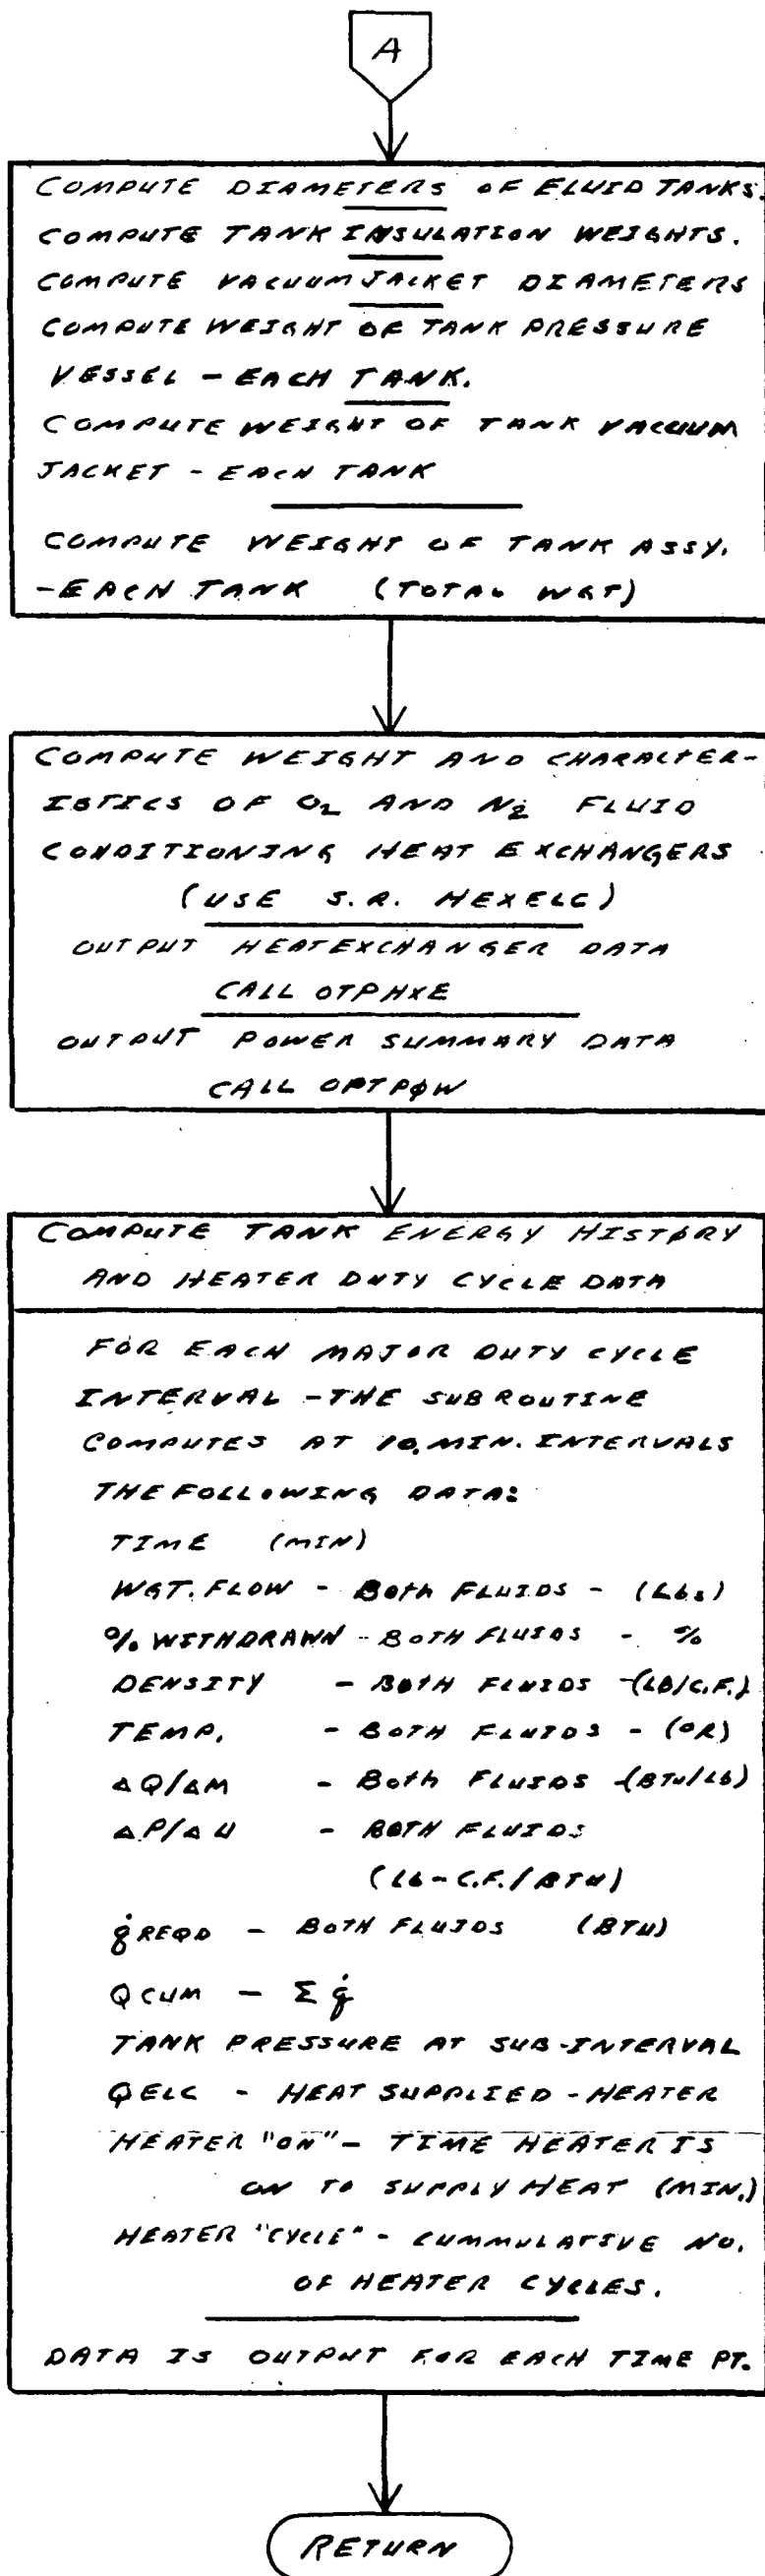 A
COMPUTE DIAMETERS OF FLUID TANKS.
COMPUTE TANK INSULATION WEIGHTS.
COMPUTE VACUUM JACKET DIAMETERS
COMPUTE WEIGHT OF TANK PRESSURE
VESSEL - EACH TANK.
COMPUTE WEIGHT OF TANK VACUUM
JACKET - EACH TANK
COMPUTE WEIGHT OF TANK ASSY.
-EACH TANK (TOTAL WGT)
COMPUTE WEIGHT AND CHARACTER-
ISTICS OF O2 AND N2 FLUID
CONDITIONING HEAT EXCHANGERS
(USE S.R. HEXELC)
OUTPUT HEATEXCHANGER DATA
CALL OTPHXE
OUTPUT POWER SUMMARY DATA
CALL OPTPØW
COMPUTE TANK ENERGY HISTØRY
AND HEATER DUTY CYCLE DATA
FOR EACH MAJOR DUTY CYCLE
INTERVAL - THE SUBROUTINE
COMPUTES AT 10. MIN. INTERVALS
THE FOLLOWING DATA:
TIME (MIN)
WGT. FLOW - Both FLUIDS - (Lbs)
% WITHDRAWN - BOTH FLUIDS - %
DENSITY - BOTH FLUIDS - (LB/C.F.)
TEMP. - BOTH FLUIDS - (°R)
ΔQ/ΔM - Both FLUIDS - (BTU/Lb)
ΔP/ΔU - BOTH FLUIDS
(Lb - C.F./BTU)
q̇ REQD - BOTH FLUIDS (BTU)
QCUM - Σ q̇
TANK PRESSURE AT SUB-INTERVAL
QELC - HEAT SUPPLIED - HEATER
HEATER "ON" - TIME HEATER IS
ON TO SUPPLY HEAT (MIN.)
HEATER "CYCLE" - CUMMULATIVE NO.
OF HEATER CYCLES.
DATA IS OUTPUT FOR EACH TIME PT.
RETURN